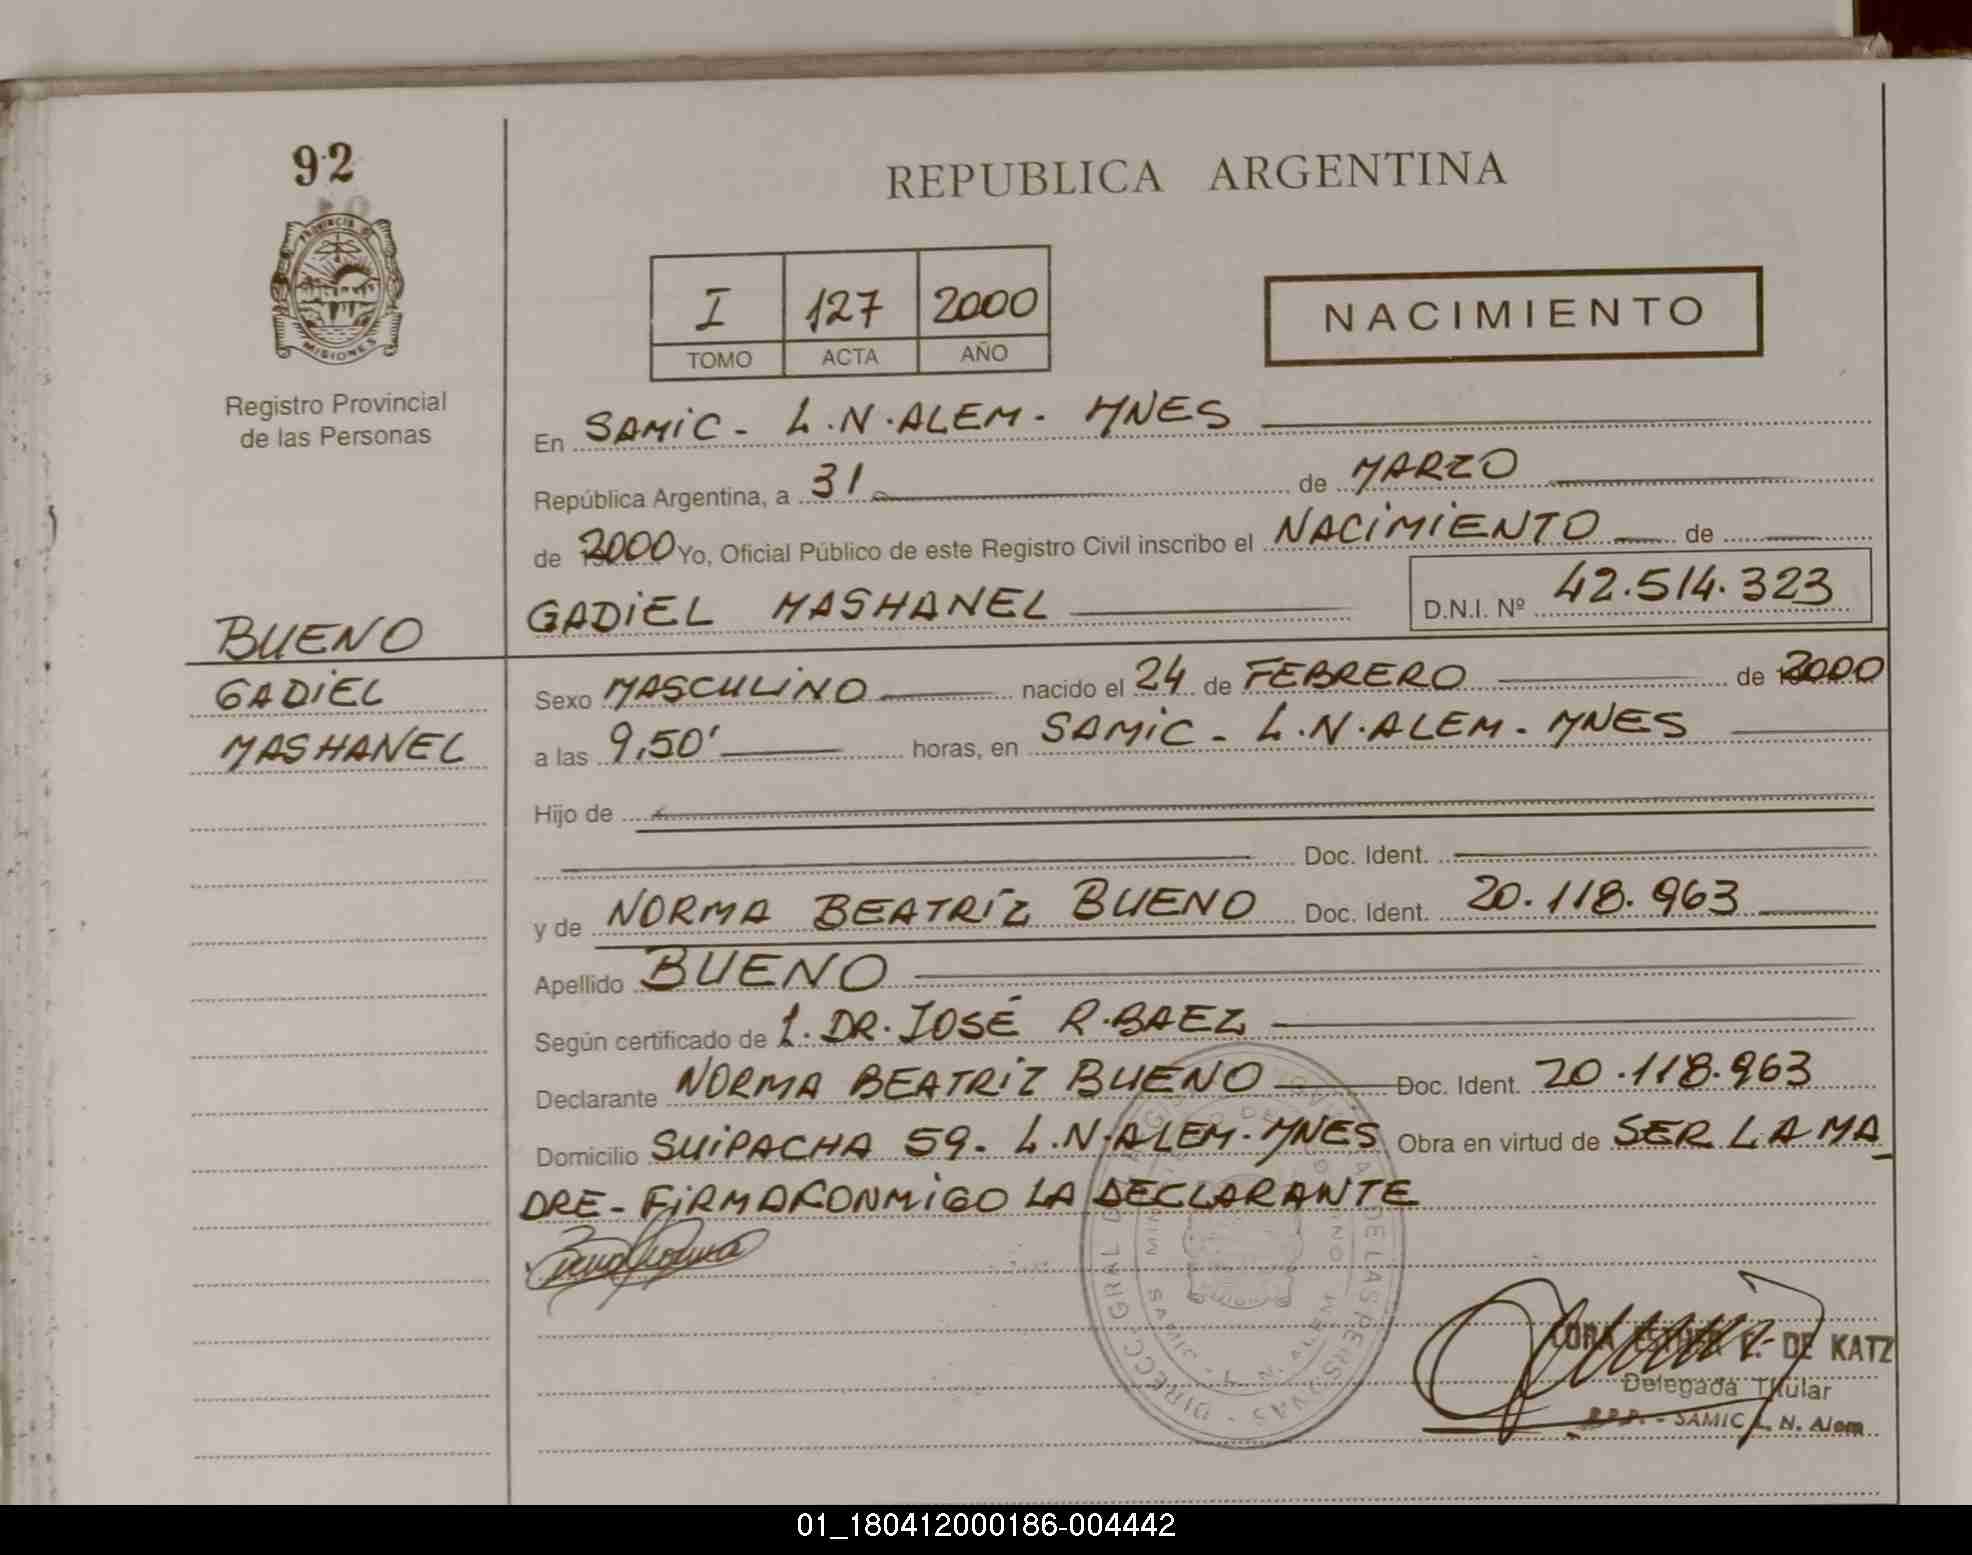 92
PROVINCIA DE
MISIONES
Registro Provincial
de las Personas
BUENO
GADIEL
MASHANEL
REPUBLICA ARGENTINA
I 127 2000
TOMO ACTA AÑO
NACIMIENTO
En SAMIC - L.N.ALEM - MNES
República Argentina, a 31 de MARZO
de 2000 Yo, Oficial Público de este Registro Civil inscribo el NACIMIENTO de
GADIEL MASHANEL D.N.I. Nº 42.514.323
Sexo MASCULINO nacido el 24 de FEBRERO de 2000
a las 9,50' horas, en SAMIC - L.N.ALEM - MNES
Hijo de
Doc. Ident.
y de NORMA BEATRÍZ BUENO Doc. Ident. 20.118.963
Apellido BUENO
Según certificado de L. DR. JOSÉ R. BAEZ
Declarante NORMA BEATRIZ BUENO Doc. Ident. 20.118.963
Domicilio SUIPACHA 59 - L.N.ALEM - MNES Obra en virtud de SER LA MA
DRE - FIRMA CONMIGO LA DECLARANTE
DE KATZ
Delegada Titular
SAMIC L. N. Alem
01_180412000186-004442